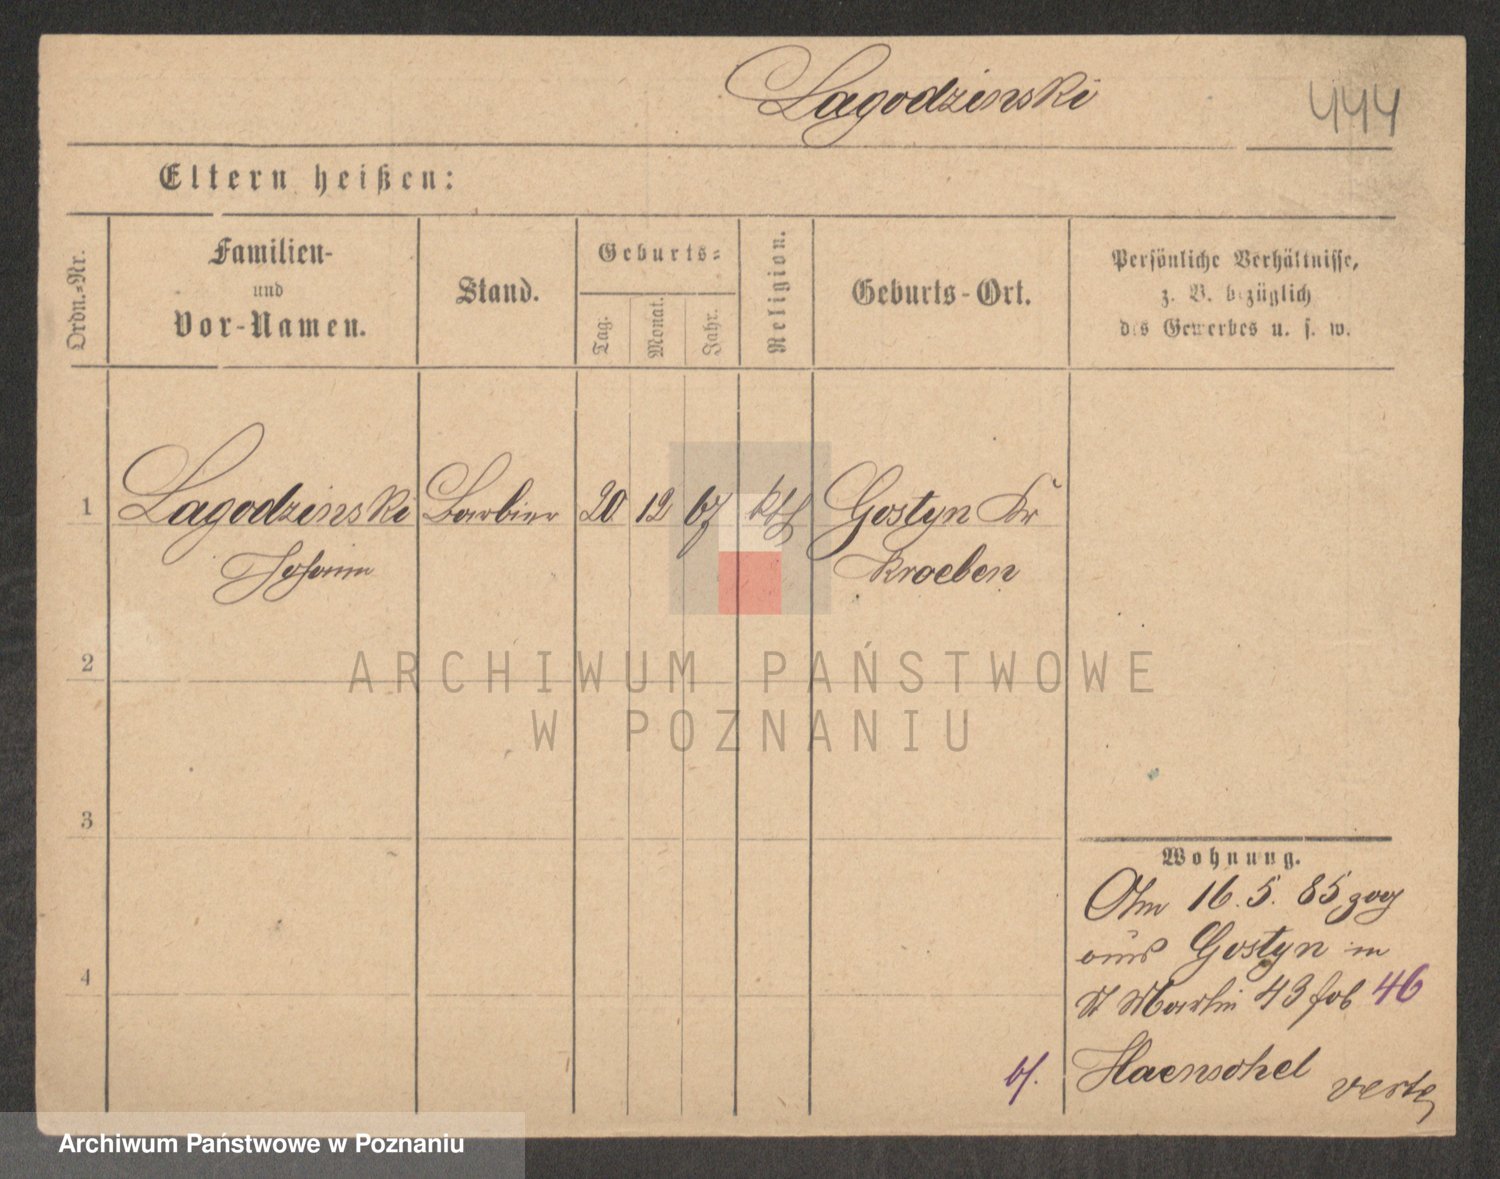 Lagodzinski
444
Eltern heißen:
Ordn.-Nr.
Familien-
und
Vor-Namen.
Stand.
Geburts-
Tag.
Monat.
Jahr.
Religion.
Geburts-Ort.
Persönliche Verhältnisse,
z. B. bezüglich
des Gewerbes u. s. w.
1
Lagodzinski
Johann
Barbier
20
12
67
kth
Gostyn Kr
Kroeben
2
3
4
Wohnung.
Am 16. 5. 85 zog
aus Gostyn in
St Martin 43 fol 46
Haenschel
verte
ARCHIWUM PAŃSTWOWE
W POZNANIU
Archiwum Państwowe w Poznaniu